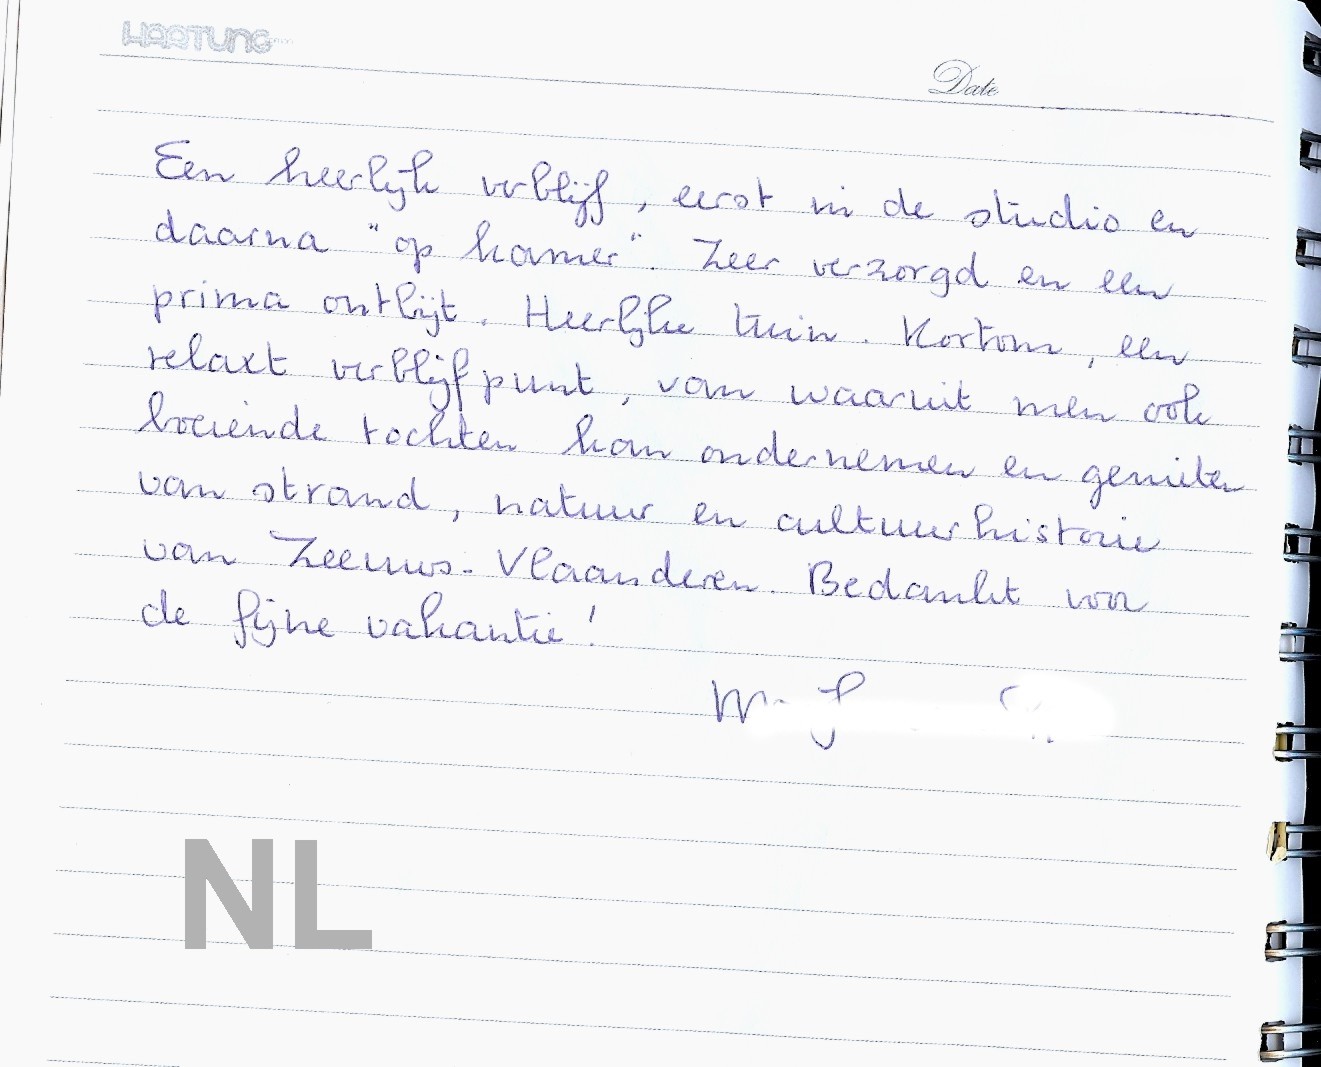 HARTUNG
Date
Een heerlijk verblijf, eerst in de studio en
daarna "op kamer". Zeer verzorgd en een
prima ontbijt. Heerlijke tuin. Kortom, een
relaxt verblijfpunt, van waaruit men ook
boeiende tochten kan ondernemen en genieten
van strand, natuur en cultuurhistorie
van Zeeuws-Vlaanderen. Bedankt voor
de fijne vakantie!
NL